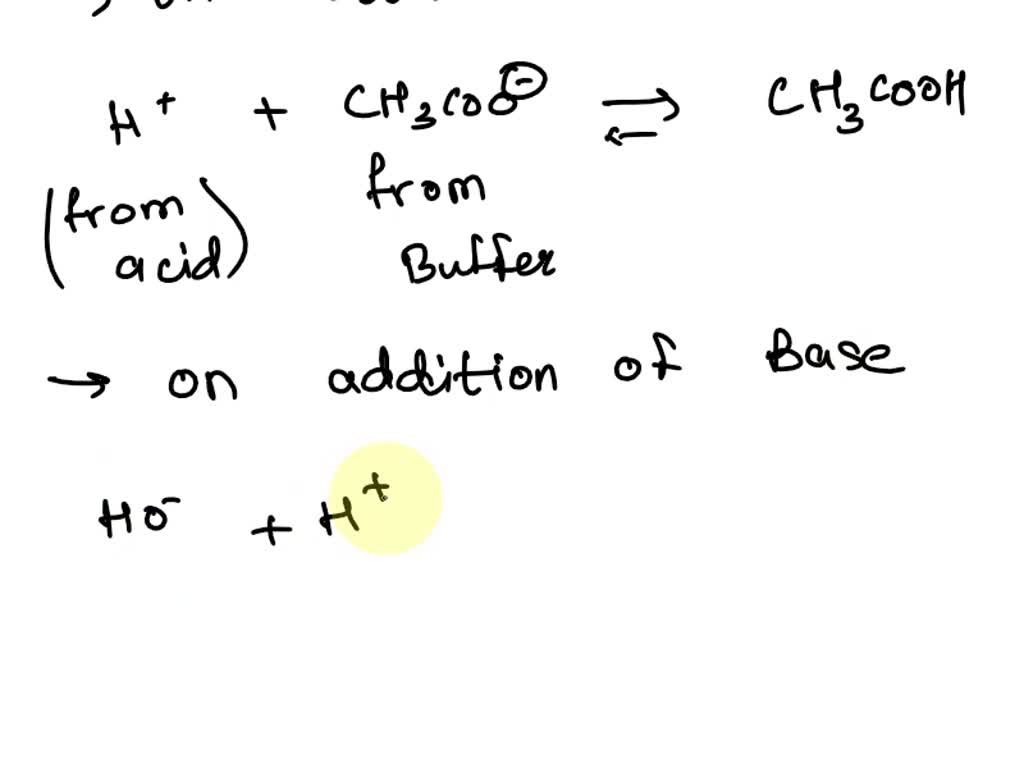 H⁺ + CH₃COO⊖ ⇌ CH₃COOH
(from from
acid) Buffer
→ on addition of Base
HO⁻ + H⁺